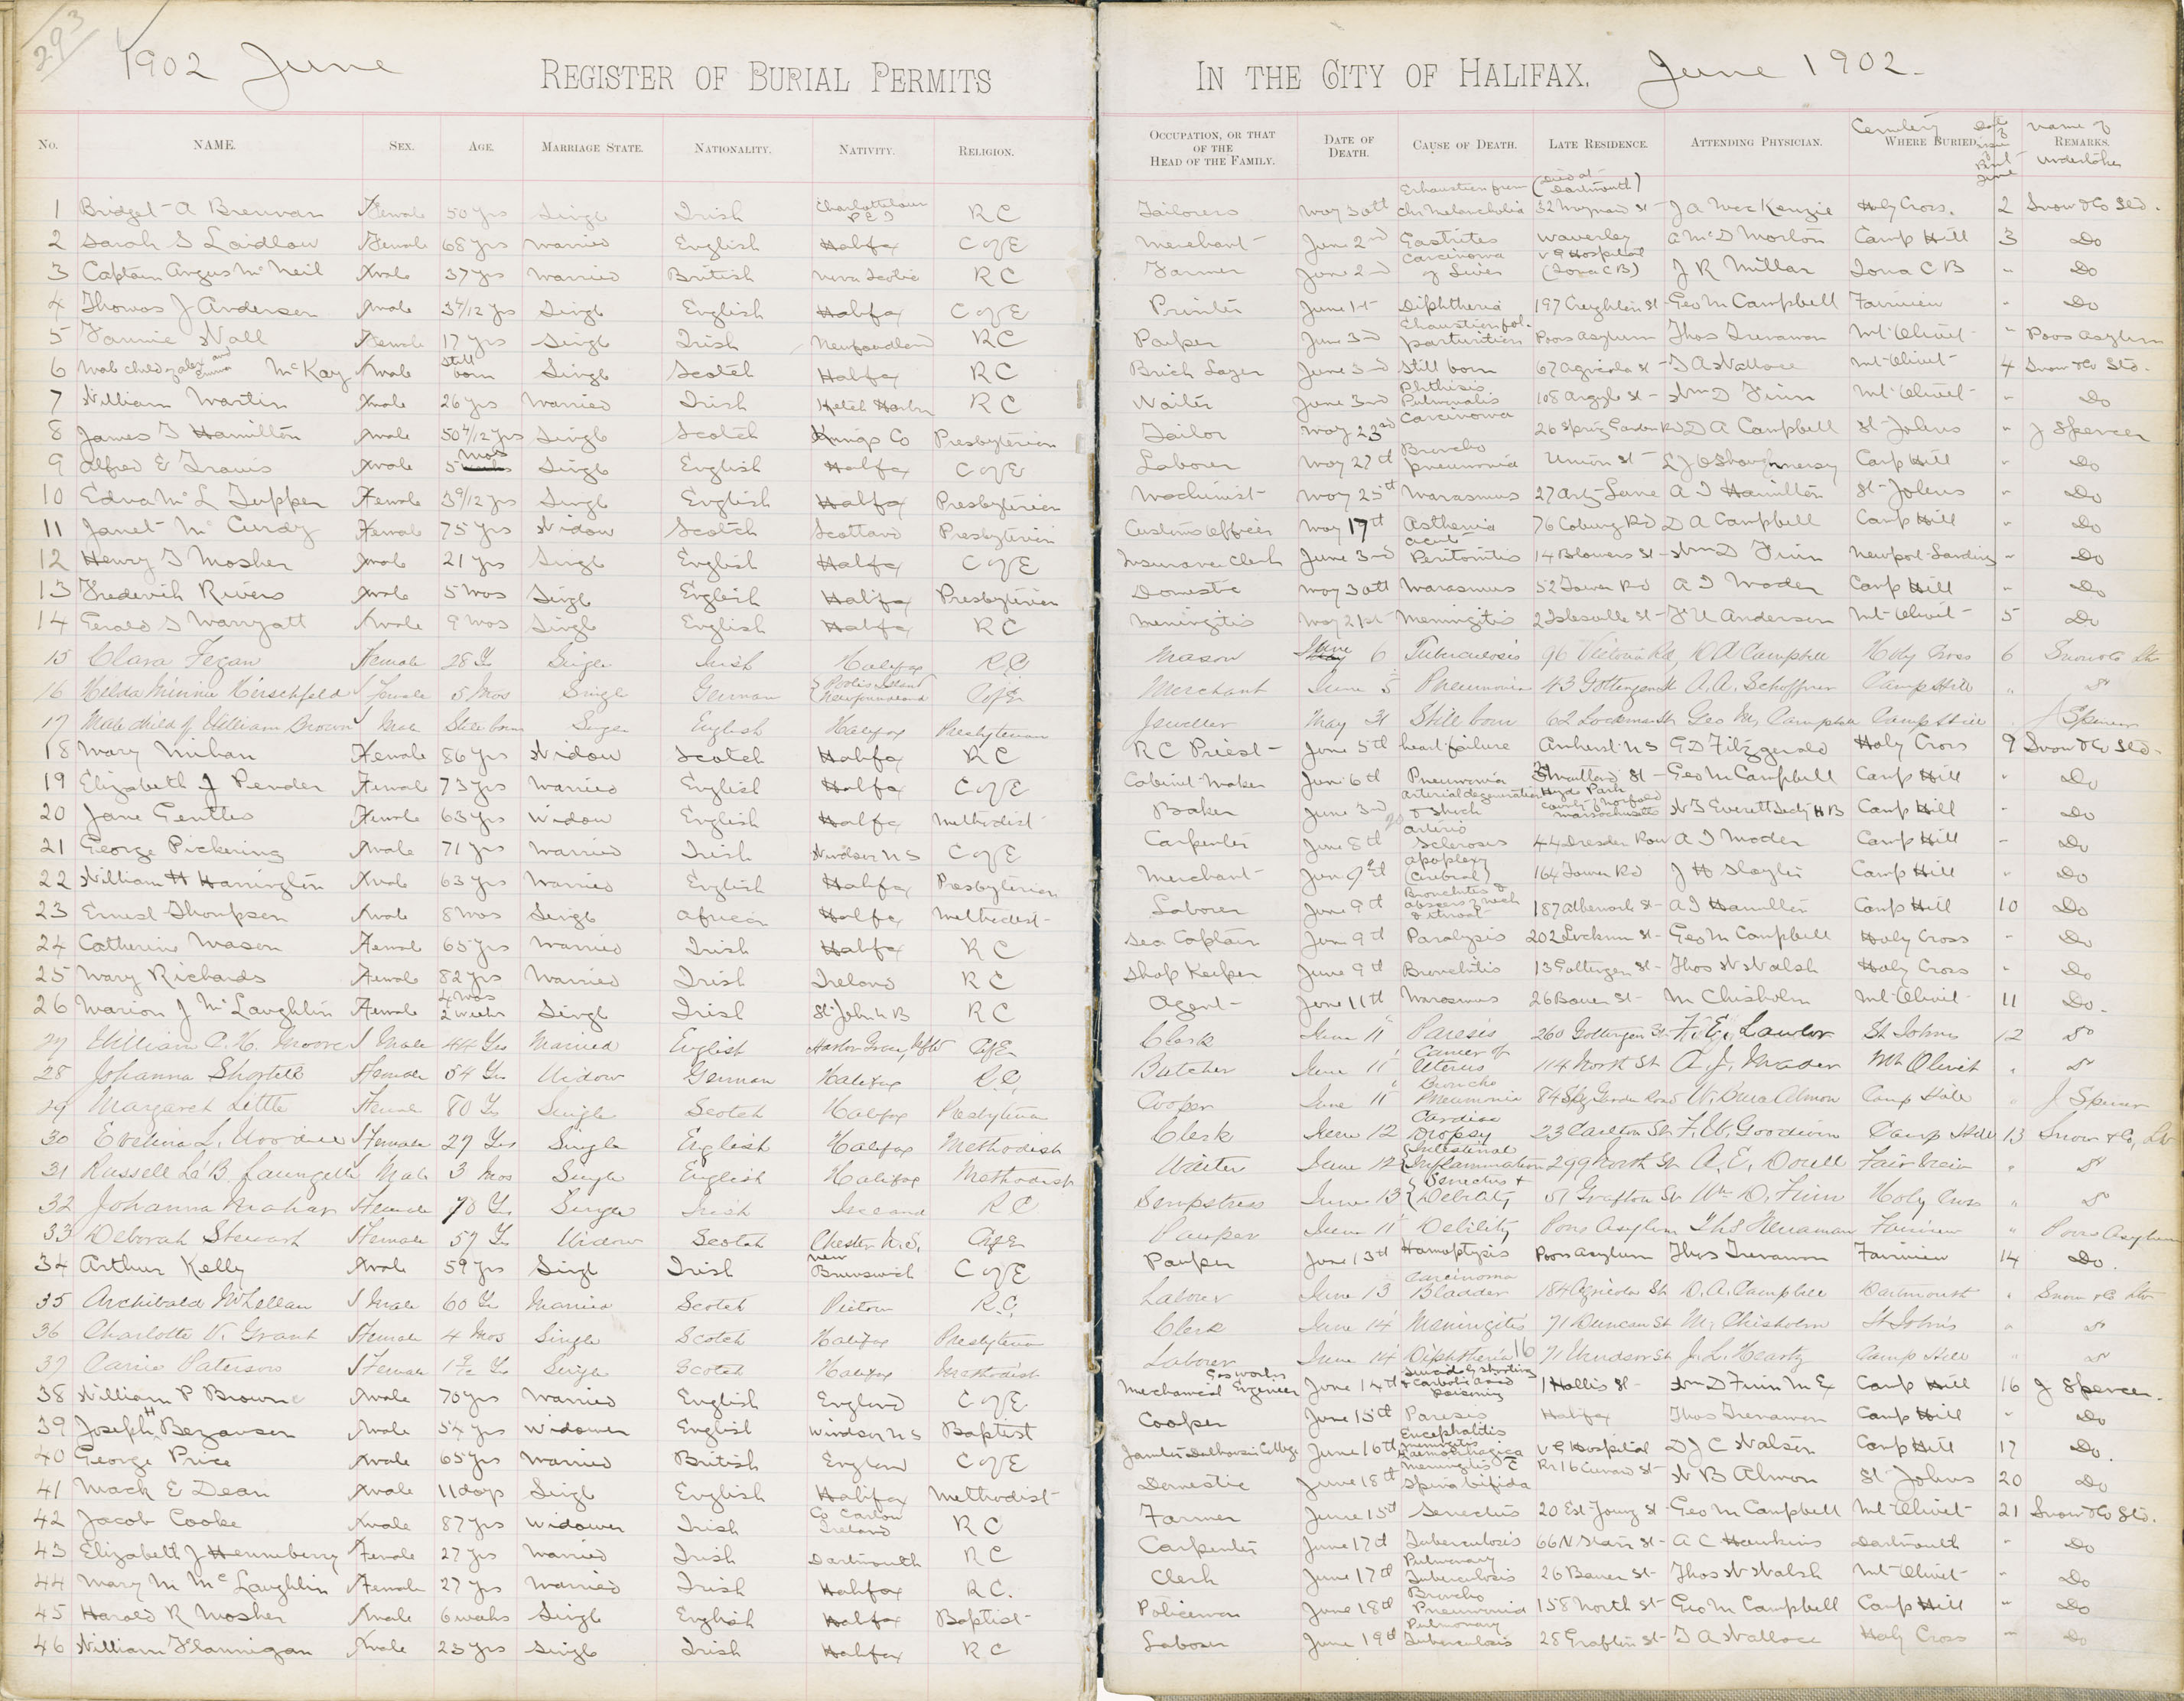 293
1902 June REGISTER OF BURIAL PERMITS IN THE CITY OF HALIFAX. June 1902.
No. NAME. SEX. AGE. MARRIAGE STATE. NATIONALITY. NATIVITY. RELIGION. OCCUPATION, OR THAT OF THE HEAD OF THE FAMILY. DATE OF DEATH. CAUSE OF DEATH. LATE RESIDENCE. ATTENDING PHYSICIAN. Cemetery WHERE BURIED. Name of REMARKS. Undertaker
1 Bridget A Brennan Female 50 yrs Single Irish Charlottetown P E I R C Tailoress May 30th Exhaustion from Chr Melancholia (Died at Dartmouth) 32 Maynard St J A MacKenzie Holy Cross. 2 Snow & Co Ltd.
2 Sarah S Laidlaw Female 68 yrs Married English Halifax C of E Merchant June 2nd Gastrites Waverley A McD Morton Camp Hill 3 Do
3 Captain Angus McNeil Male 37 yrs Married British Nova Scotia R C Farmer June 2nd Carcinoma of Liver V G Hospital (Iona C B) J R Millar Iona C B " Do
4 Thomas J Anderson Male 3 4/12 yrs Single English Halifax C of E Printer June 1st Diphtheria 197 Creighton St Geo M Campbell Fairview " Do
5 Fannie Wall Female 17 yrs Single Irish Newfoundland R C Pauper June 3rd Exhaustion fol. parturition Poors Asylum Thos Trenaman Mt Olivet " Poors Asylum
6 Male child of Alex and Emma McKay Male Still born Single Scotch Halifax R C Brick Layer June 3rd Still born 67 Agricola St T A Wallace Mt Olivet 4 Snow & Co Ltd.
7 William Martin Male 26 yrs Married Irish Ketch Harbr R C Waiter June 3rd Phthisis Pulmonalis 108 Argyle St Wm D Finn Mt Olivet " Do
8 James T Hamilton Male 50 4/12 yrs Single Scotch Kings Co Presbyterian Tailor May 23rd Carcinoma 26 Spring Garden Rd D A Campbell St Johns " J Spencer
9 Alfred E Travis Male 5 mos Single English Halifax C of E Laborer May 27th Broncho pneumonia Union St L J O'Shaughnessy Camp Hill " Do
10 Edna McL Tupper Female 3 9/12 yrs Single English Halifax Presbyterian Machinist May 25th Marasmus 27 Artz Lane A I Hamilton St Johns " Do
11 Janet McCurdy Female 75 yrs Widow Scotch Scotland Presbyterian Customs Officer May 17th Asthenia 76 Coburg Rd D A Campbell Camp Hill " Do
12 Henry T Mosher Male 21 yrs Single English Halifax C of E Insurance Clerk June 3rd acute Peritonitis 14 Blowers St Wm D Finn Newport Landing " Do
13 Frederick Rivers Male 5 mos Single English Halifax Presbyterian Domestic May 30th Marasmus 52 Tower Rd A I Mader Camp Hill " Do
14 Gerald S Marryatt Male 9 mos Single English Halifax R C Meningitis May 21st Meningitis 2 Islesville St F U Anderson Mt Olivet 5 Do
15 Clara Fegan Female 28 Ys Single Irish Halifax R.C Mason June 6 Tuberculosis 96 Victoria Rd D A Campbell Holy Cross 6 Snow & Co Ltd
16 Hilda Minnie Hirschfeld Female 5 Mos Single German Newfoundland C of E Merchant June 5 Pneumonia 43 Gottingen St A. A. Schaffner Camp Hill " Do
17 Male child of William Brown Male Still born Single English Halifax Presbyterian Jeweller May 31 Still born 62 Lockman St Geo M. Campbell Camp Hill J Spencer
18 Mary Mihan Female 86 yrs Widow Scotch Halifax R C R C Priest June 5th heart failure Amherst N S G D Fitzgerald Holy Cross 9 Snow & Co Ltd.
19 Elizabeth J Pender Female 73 yrs Married English Halifax C of E Cabinet Maker June 6th Pneumonia Maitland St Geo M Campbell Camp Hill " Do
20 Jane Gentles Female 63 yrs Widow English Halifax Methodist Baker June 3rd arterial degeneration & shock Hyde Park County of Norfolk Massachusetts W F Everett Secty H B Camp Hill Do
21 George Pickering Male 71 yrs Married Irish Windsor N S C of E Carpenter June 8th arterio Sclerosis 44 Dresden Row A I Mader Camp Hill " Do
22 William H Harrington Male 63 yrs Married English Halifax Presbyterian Merchant June 9th apoplexy (Cerebral) 164 Tower Rd J H Slayter Camp Hill " Do
23 Ernest Thompson Male 8 mos Single African Halifax Methodist Laborer June 9th Bronchitis & abscess of neck & throat 187 Albemarle St A I Hamilton Camp Hill 10 Do
24 Catherine Mason Female 65 yrs Married Irish Halifax R C Sea Captain June 9th Paralysis 202 Lockman St Geo M Campbell Holy Cross " Do
25 Mary Richards Female 82 yrs Married Irish Ireland R C Shop Keeper June 9th Bronchitis 13 Gottingen St Thos W Walsh Holy Cross " Do
26 Marion J McLaughlin Female 4 mos 2 weeks Single Irish St John N B R C Agent June 11th Marasmus 26 Bauer St M Chisholm Mt Olivet 11 Do.
27 William C. H. Moore Male 44 Yrs Married English Harbor Grace, Nfld C of E Clerk June 11 Paresis 260 Gottingen St F. E. Lawlor St Johns 12 Do
28 Johanna Shortell Female 54 Ys Widow German Halifax R.C. Butcher June 11 Cancer of Uterus 114 North St A. J. Mader Mt Olivet " Do
29 Margaret Little Female 80 Ys Single Scotch Halifax Presbyterian Cooper June 11 Broncho Pneumonia 84 Spg Garden Road W. Bruce Almon Camp Hill " J Spencer
30 Evelina L. Woodill Female 27 Yrs Single English Halifax Methodist Clerk June 12 Cardiac Dropsy 23 Carlton St F. W. Goodwin Camp Hill 13 Snow & Co, Ltd
31 Russell Le B. Male 3 Mos Single English Halifax Methodist Waiter June 12 Intestinal Inflammation 299 North St A. E. Doull Fairview " Do
32 Johanna Mahar Female 70 Ys Single Irish Ireland R C Sempstress June 13 Senectus & Debility 51 Grafton St Wm D. Finn Holy Cross " Do
33 Deborah Stewart Female 57 Ys Widow Scotch Chester N.S. C of E Pauper June 11 Debility Poors Asylum Thos Trenaman Fairview " Poors Asylum
34 Arthur Kelly Male 59 yrs Single Irish New Brunswick C of E Pauper June 13th Hamoptysis Poors Asylum Thos Trenaman Fairview 14 Do.
35 Archibald McLellan Male 60 Ys Married Scotch Pictou R.C. Labour June 13 Carcinoma Bladder 184 Agricola St D. A. Campbell Dartmouth " Snow & Co Ltd
36 Charlotte V. Grant Female 4 Mos Single Scotch Halifax Presbyterian Clerk June 14 Meningitis 71 Duncan St M. Chisholm St John's " Do
37 Carrie Paterson Female Single Scotch Halifax Methodist Laborer June 14 Diphtheria 16 71 Windsor St J. L. Hearty Camp Hill " Do
38 William P Browne Male 70 yrs Married English England C of E Gas works Mechanical Engineer June 14th Suicide by shooting & carbolic acid poisoning 1 Hollis St Wm D Finn M E Camp Hill 16 J Spencer.
39 Joseph H Bezanson Male 54 yrs Widower English Windsor N S Baptist Cooper June 15th Paresis Halifax Thos Trenaman Camp Hill " Do
40 George Price Male 65 yrs Married British England C of E Janitor Dalhousie College June 16th Encephalitis meningitis Haemorrhagica V G Hospital D J C Watson Camp Hill 17 Do.
41 Mack E Dean Male 11 days Single English Halifax Methodist Domestic June 18th meningitis c Spina bifida Rr 16 Cunard St W B Almon St Johns 20 Do
42 Jacob Cooke Male 87 yrs Widower Irish Co Carlow Ireland R C Farmer June 15th Senectus 20 Est Young St Geo M Campbell Mt Olivet 21 Snow & Co Ltd.
43 Elizabeth J Henneberry Female 27 yrs Married Irish Dartmouth R C Carpenter June 17th Tuberculosis 66 N Starr St A C Hawkins Dartmouth " Do
44 Mary M McLaughlin Female 27 yrs Married Irish Halifax R C. Clerk June 17th Pulmonary Tuberculosis 26 Bauer St Thos W Walsh Mt Olivet " Do
45 Harold R Mosher Male 6 weeks Single English Halifax Baptist Policeman June 18th Broncho Pneumonia 158 North St Geo M Campbell Camp Hill " Do
46 William Flannigan Male 23 yrs Single Irish Halifax R C Laborer June 19th Pulmonary Tuberculosis 28 Grafton St T A Wallace Holy Cross " Do